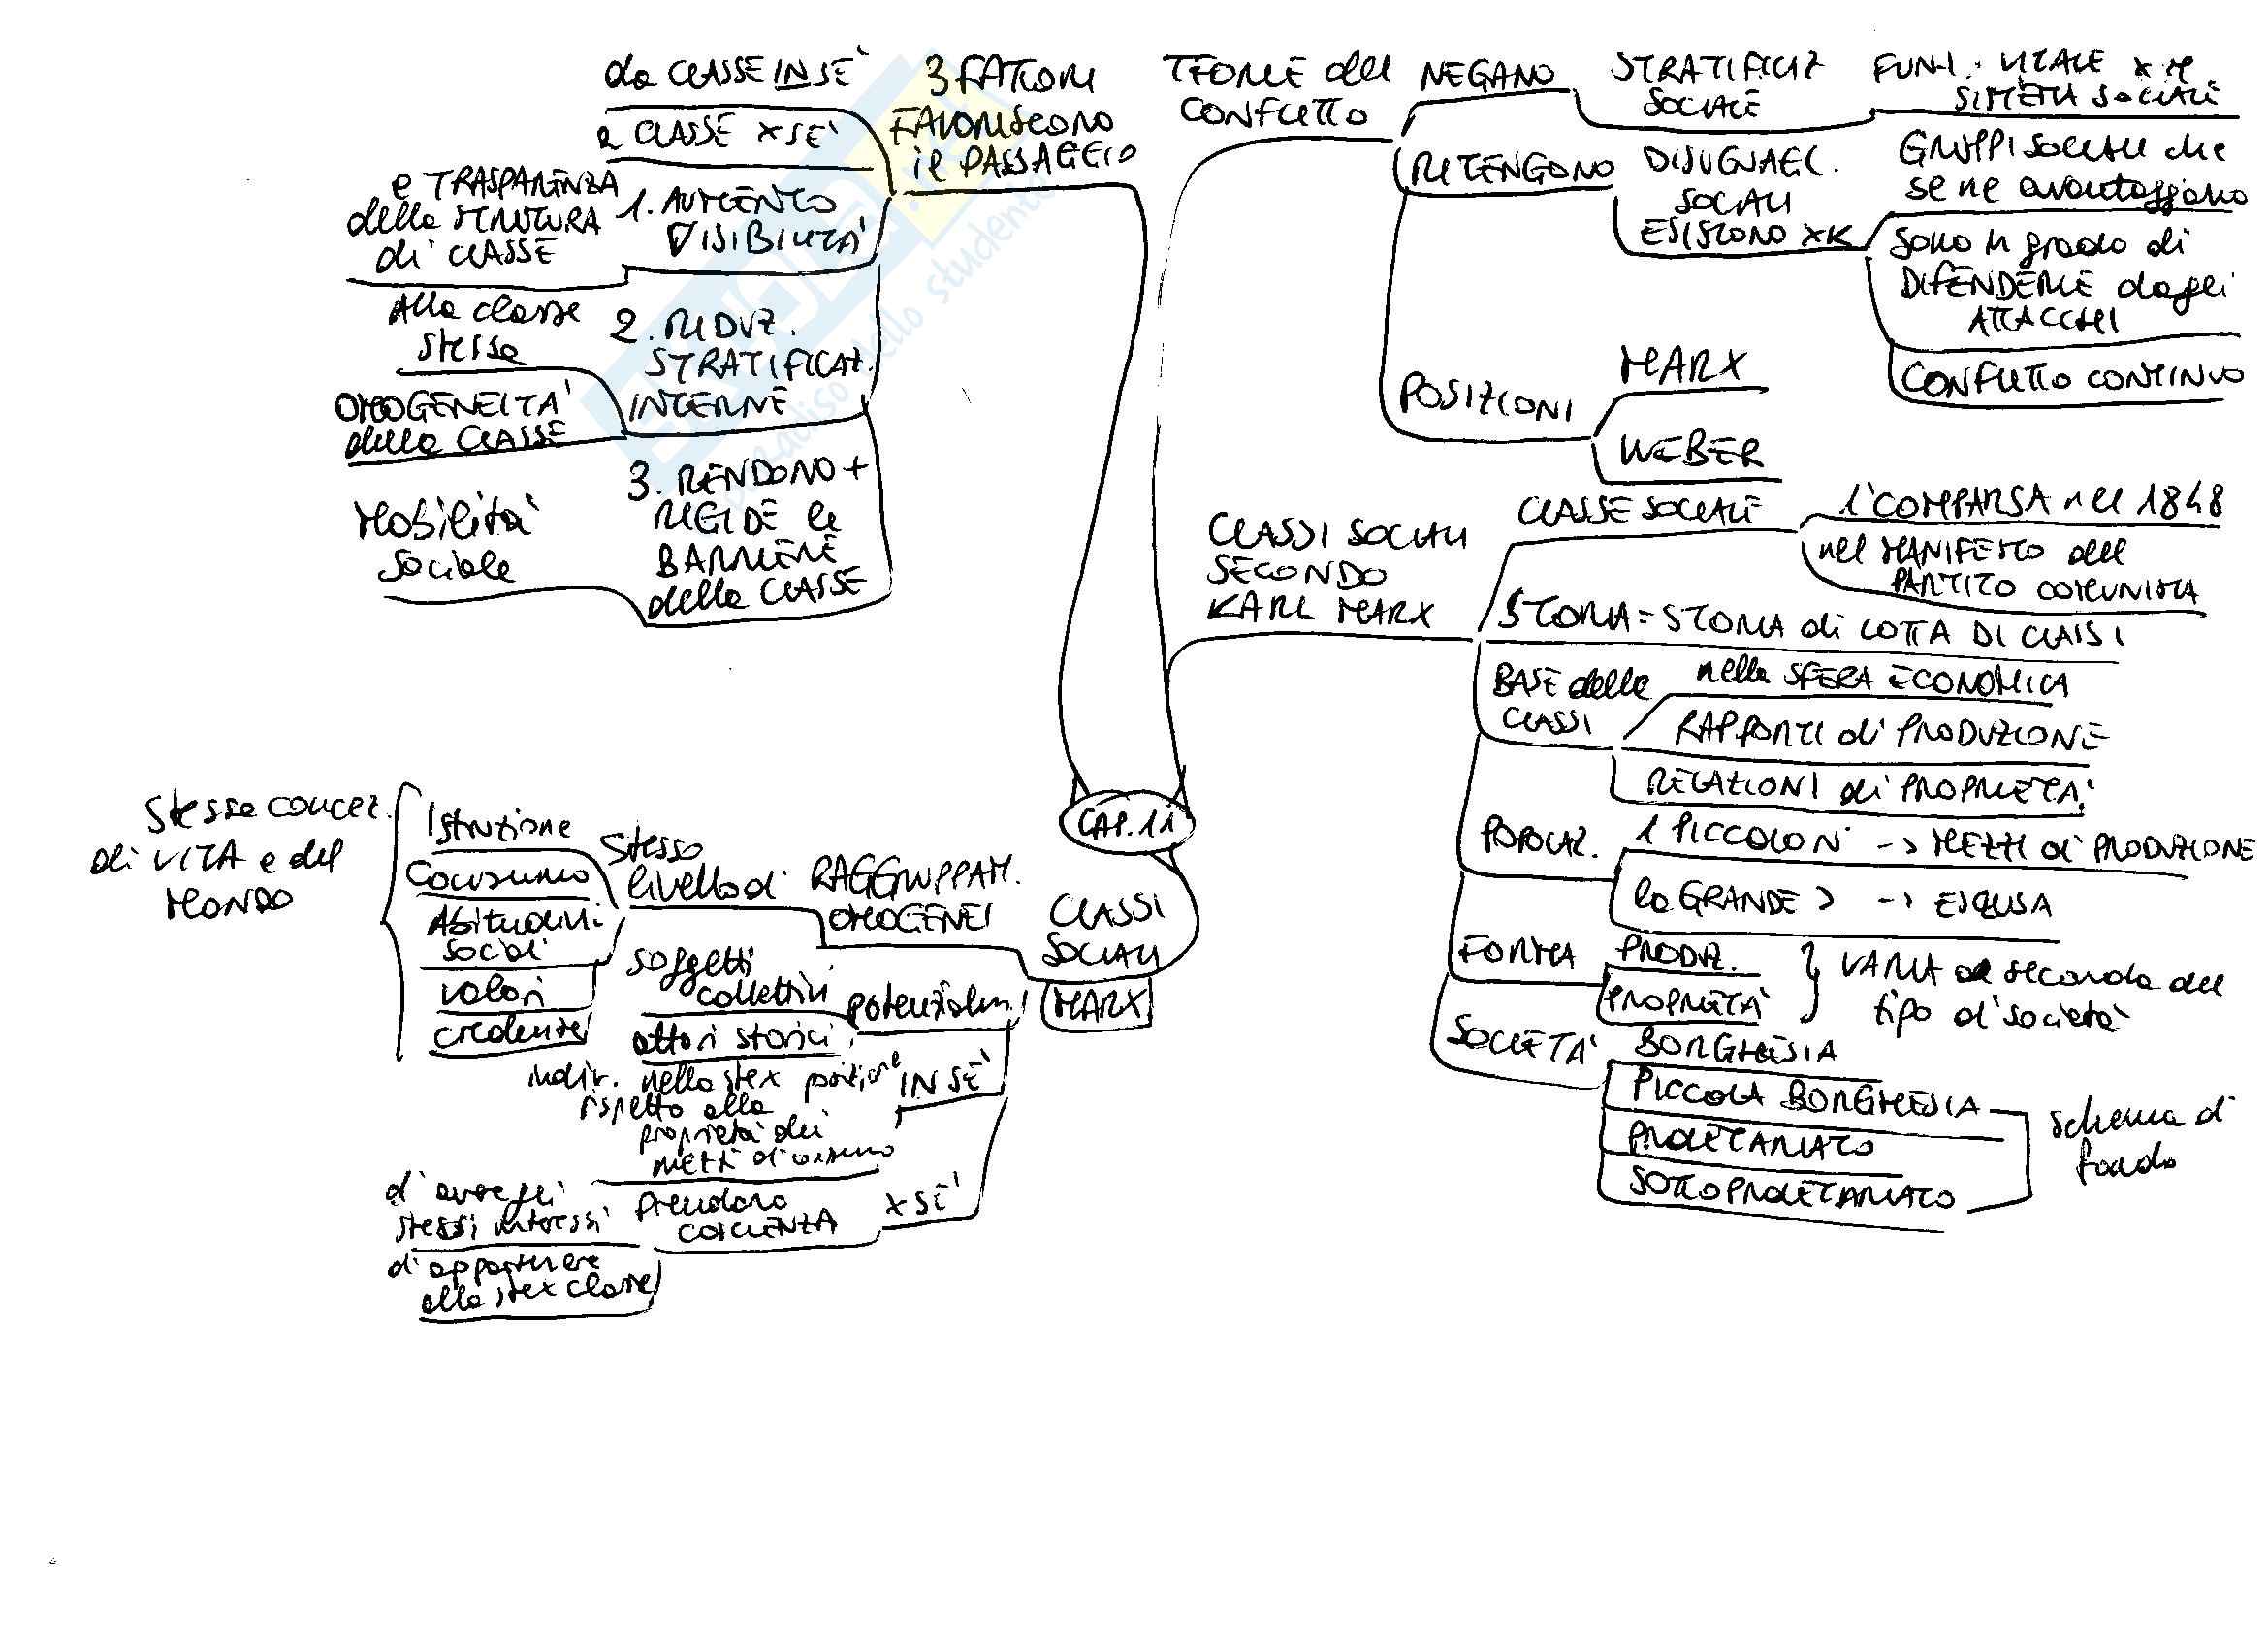 TEORIE del CONFLITTO
NEGANO
STRATIFICAZ SOCIALE
FUNZ. VITALE x il SISTEMA SOCIALE
RITENGONO
DISUGUAGL. SOCIALI ESISTONO XK
GRUPPI SOCIALI che se ne avvantaggiano
sono in grado di DIFENDERLE dagli ATTACCHI
CONFLITTO CONTINUO
POSIZIONI
MARX
WEBER
CLASSI SOCIALI SECONDO KARL MARX
CLASSE SOCIALE
1° COMPARSA nel 1848
nel MANIFESTO del PARTITO COMUNISTA
STORIA = STORIA di LOTTA DI CLASSI
BASE delle CLASSI
nella SFERA ECONOMICA
RAPPORTI di PRODUZIONE
RELAZIONI di PROPRIETÀ
POPOLAZ.
1 PICCOLO N° -> MEZZI di PRODUZIONE
la GRANDE > -> ESCLUSA
FORMA
PRODUZ.
PROPRIETÀ
VARIA a seconda del tipo di società
SOCIETÀ
BORGHESIA
PICCOLA BORGHESIA
PROLETARIATO
SOTTOPROLETARIATO
schema di fondo
CAP. 11
3 FATTORI FAVORISCONO il PASSAGGIO
da CLASSE IN SÈ
a CLASSE x SÈ
1. AUMENTO VISIBILITÀ
e TRASPARENZA della STRUTTURA di CLASSE
2. RIDUZ. STRATIFICAZ. INTERNE
Alla classe stessa
OMOGENEITÀ della CLASSE
3. RENDONO + RIGIDE le BARRIERE della CLASSE
Mobilità sociale
CLASSI SOCIALI
MARX
RAGGRUPPAM. OMOGENEI
stesso livello di
Istruzione
Consumo
Abitudini sociali
valori
credenze
stessa concez. di VITA e del MONDO
potenzialm
soggetti collettivi
attori storici
IN SÈ
indiv. nella stex posizione rispetto alla proprietà dei mezzi di
x SÈ
prendono COSCIENZA
d'avere gli stessi interessi
d'appartenere alla stex classe